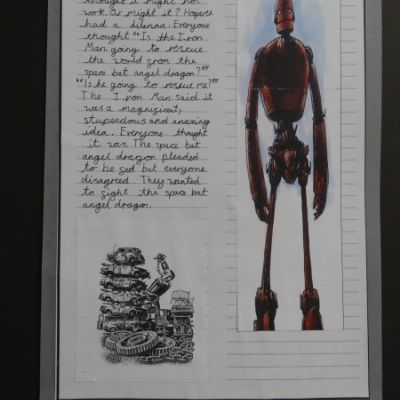 thought it might not
work. Or might it? Hogarth
had a dilemna. Everyone
thought "Is the Iron
Man going to rescue
the world from the
space bat angel dragon?"
"Is he going to rescue me?"
The Iron Man said it
was a magnificent,
stupendous and amazing
idea. Everyone thought
it was. The space bat
angel dragon pleaded
to be fed but everyone
disagreed. They wanted
to fight the space bat
angel dragon.